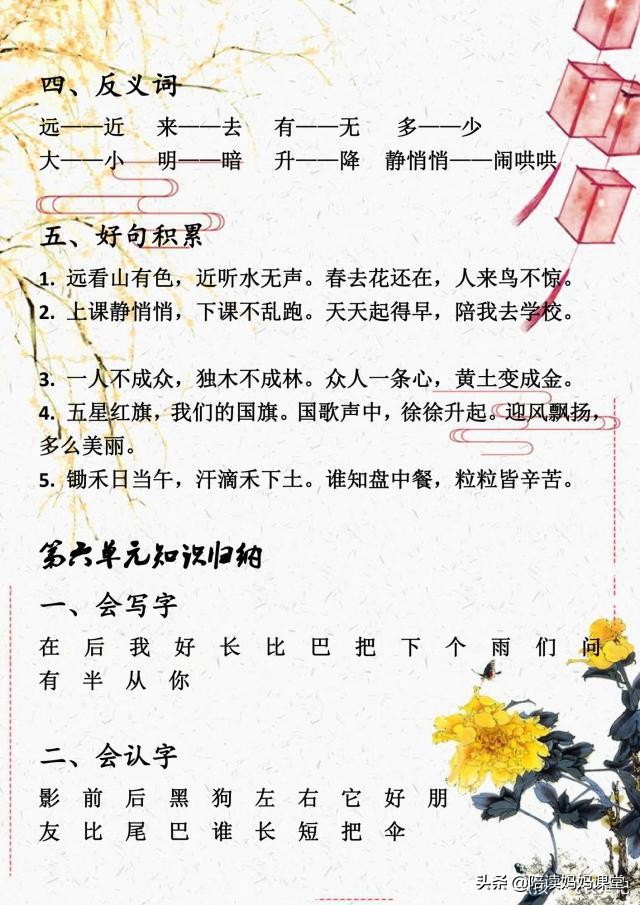 四、反义词
远——近 来——去 有——无 多——少
大——小 明——暗 升——降 静悄悄——闹哄哄
五、好句积累
1. 远看山有色，近听水无声。春去花还在，人来鸟不惊。
2. 上课静悄悄，下课不乱跑。天天起得早，陪我去学校。
3. 一人不成众，独木不成林。众人一条心，黄土变成金。
4. 五星红旗，我们的国旗。国歌声中，徐徐升起。迎风飘扬，
多么美丽。
5. 锄禾日当午，汗滴禾下土。谁知盘中餐，粒粒皆辛苦。
第六单元知识归纳
一、会写字
在 后 我 好 长 比 巴 把 下 个 雨 们 问
有 半 从 你
二、会认字
影 前 后 黑 狗 左 右 它 好 朋
友 比 尾 巴 谁 长 短 把 伞
头条 @陪读妈妈课堂